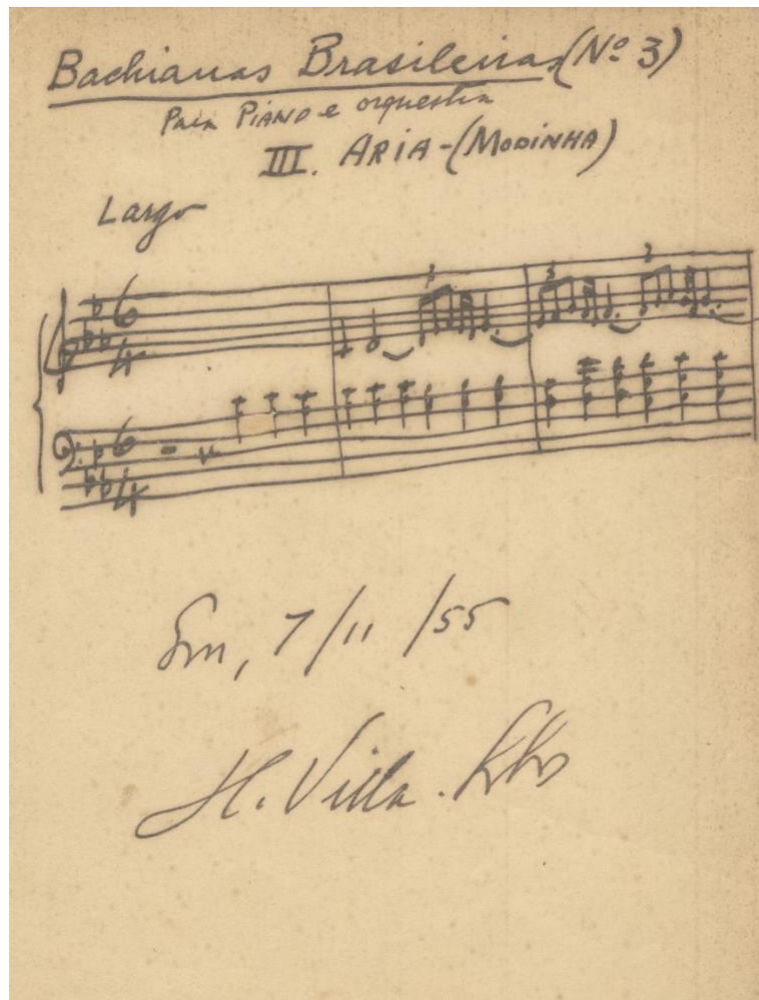 Bachianas Brasileiras (Nº 3)
Para PIANO e orquestra
III. ARIA - (MODINHA)
Largo
6 4
3
3 3
6 4
Em, 7/11/55
H. Villa-Lobos